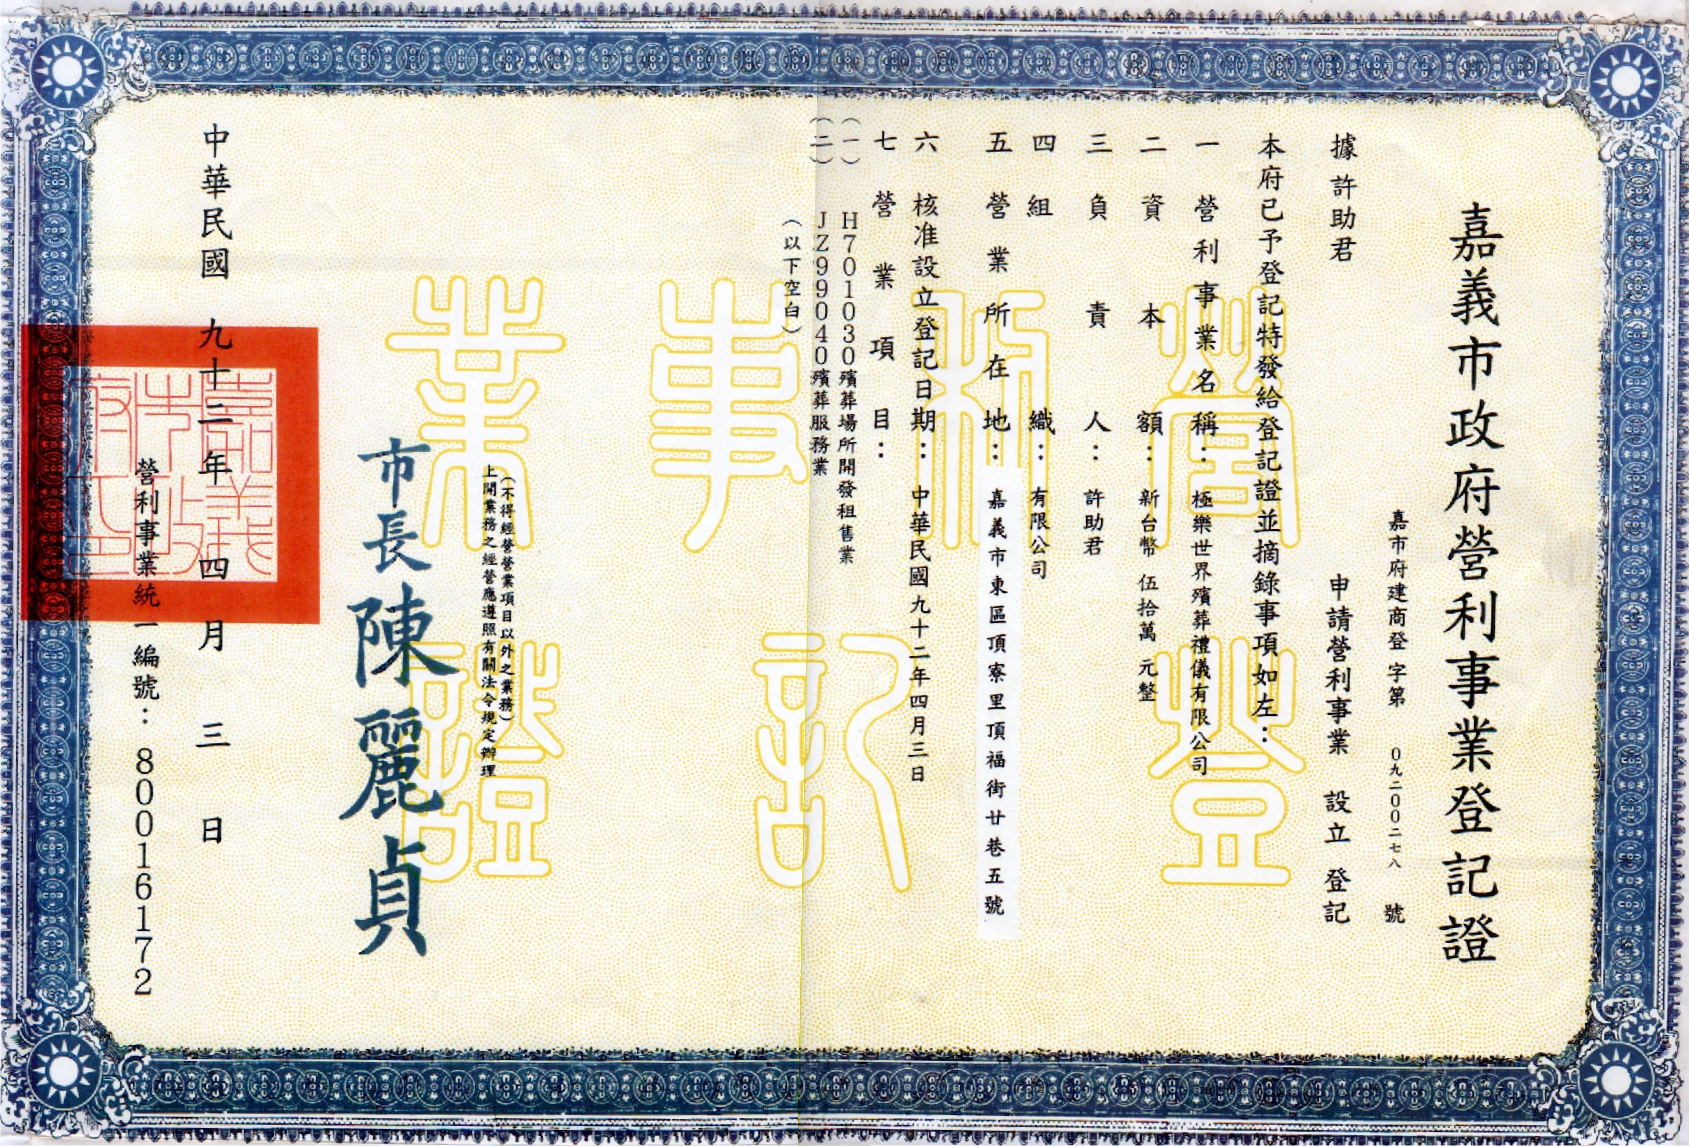 嘉義市政府營利事業登記證
嘉市府建商登 字第 0九二00二七八 號
據 許助君 申請營利事業 設立 登記
本府已予登記特發給登記證並摘錄事項如左：
一 營利事業名稱：極樂世界殯葬禮儀有限公司
二 資本額：新台幣 伍拾萬 元整
三 負責人：許助君
四 組織：有限公司
五 營業所在地：嘉義市東區頂寮里頂福街廿巷五號
六 核准設立登記日期：中華民國九十二年四月三日
七 營業項目：
（一） H701030殯葬場所開發租售業
（二） JZ99040殯葬服務業
（以下空白）
（不得經營營業項目以外之業務）
上開業務之經營應遵照有關法令規定辦理
市長陳麗貞
中華民國 九十二年 四月 三日
營利事業統一編號：80016172
嘉義市政府印
營利事業
登記證